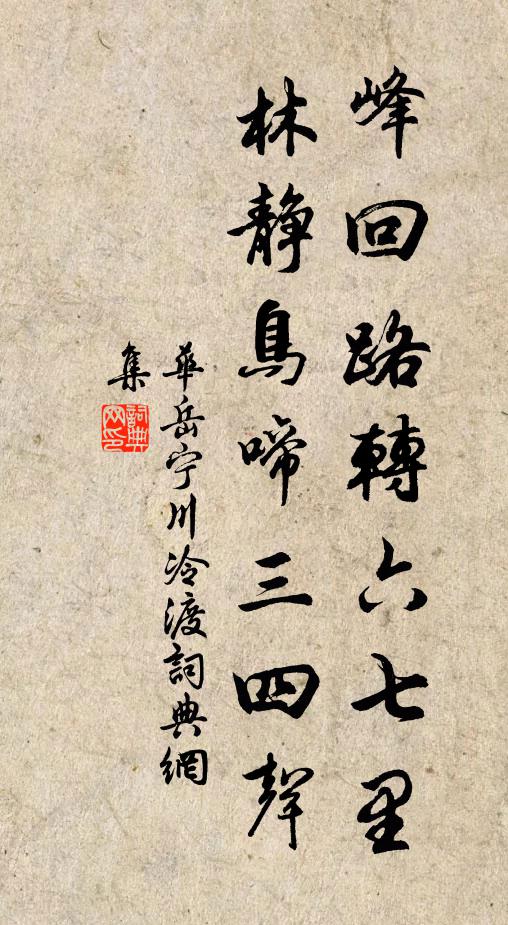 峰回路轉六七里
林靜鳥啼三四聲
華岳宁川冷渡詞典網
集
詞典
网印